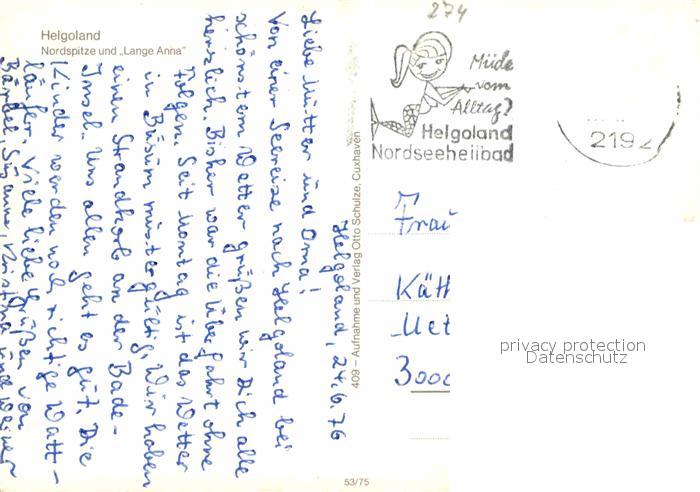 274
Helgoland
Nordspitze und „Lange Anna"
Helgoland, 24.6.76
Liebe Mutter und Oma!
Von einer Seereise nach Helgoland bei
schönstem Wetter grüßen wir Dich alle
herzlich. Bisher war die Überfahrt ohne
Folgen. Seit Montag ist das Wetter
in Büsum mustergültig. Wir haben
einen Strandkorb an der Bade-
Insel. Uns allen geht es gut. Die
Kinder werden noch richtige Watt-
läufer. Viele liebe Grüßen von
Bärbel, Susanne, Kristina und Werner
409 – Aufnahme und Verlag Otto Schulze, Cuxhaven
53/75
Müde
vom
Alltag?
Helgoland
Nordseeheilbad
2192
Frau
Käth
Met
3000
privacy protection
Datenschutz